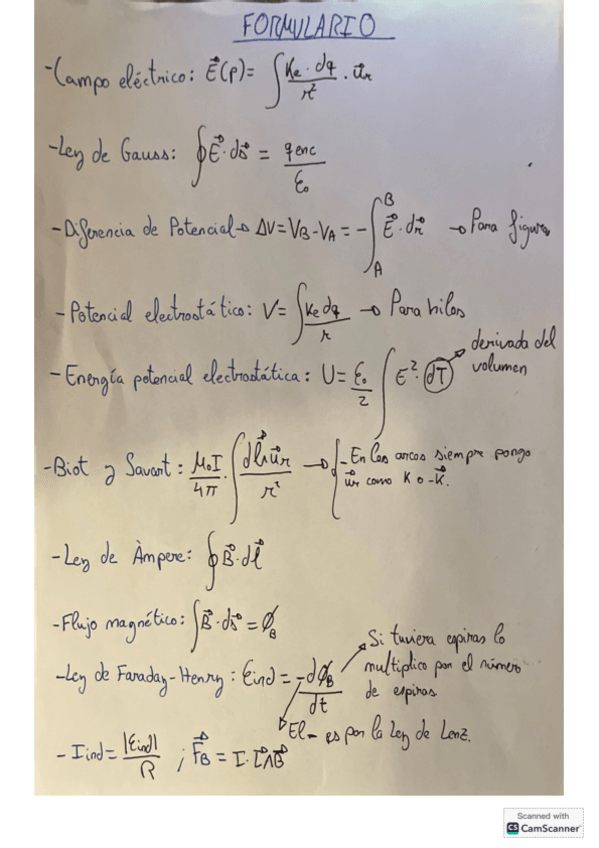 FORMULARIO
-Campo eléctrico: E⃗(p)= ∫ Ke·dq/r² · u⃗r
-Ley de Gauss: ∮E⃗·ds⃗ = qenc/ε₀
-Diferencia de Potencial→ ΔV=VB-VA= -∫_A^B E⃗·dr⃗ → Para figuras
-Potencial electrostático: V= ∫ Ke dq/r → Para hilos
-Energía potencial electrostática: U= ε₀/2 ∫ E²·dT → derivada del
volumen
-Biot y Savart: μ₀I/4π · ∫ dl⃗∧u⃗r/r² → { -En los arcos siempre pongo
u⃗r como K o -K⃗.
-Ley de Àmpere: ∮B⃗·dl⃗
-Flujo magnético: ∫B⃗·ds⃗ = ∅B
-Ley de Faraday-Henry: εind = -d∅B/dt
Si tuviera espiras lo
multiplico por el número
de espiras
El - es por la Ley de Lenz.
- Iind= |εind|/R ; F⃗B = I·L⃗∧B⃗
Scanned with
CS CamScanner